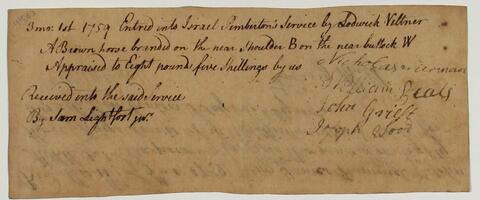 3mo: 1st 1759 Entred into Israel Pemberton's Service by Lodwick Vellner
A Brown horse branded on the near Shoulder B on the near buttock W
Appraised to Eight pounds five Shellings by us
Nicholas
William Beals
John Griest
Joseph Wood
Received into the said Service
By Sam Lightfoot junr.